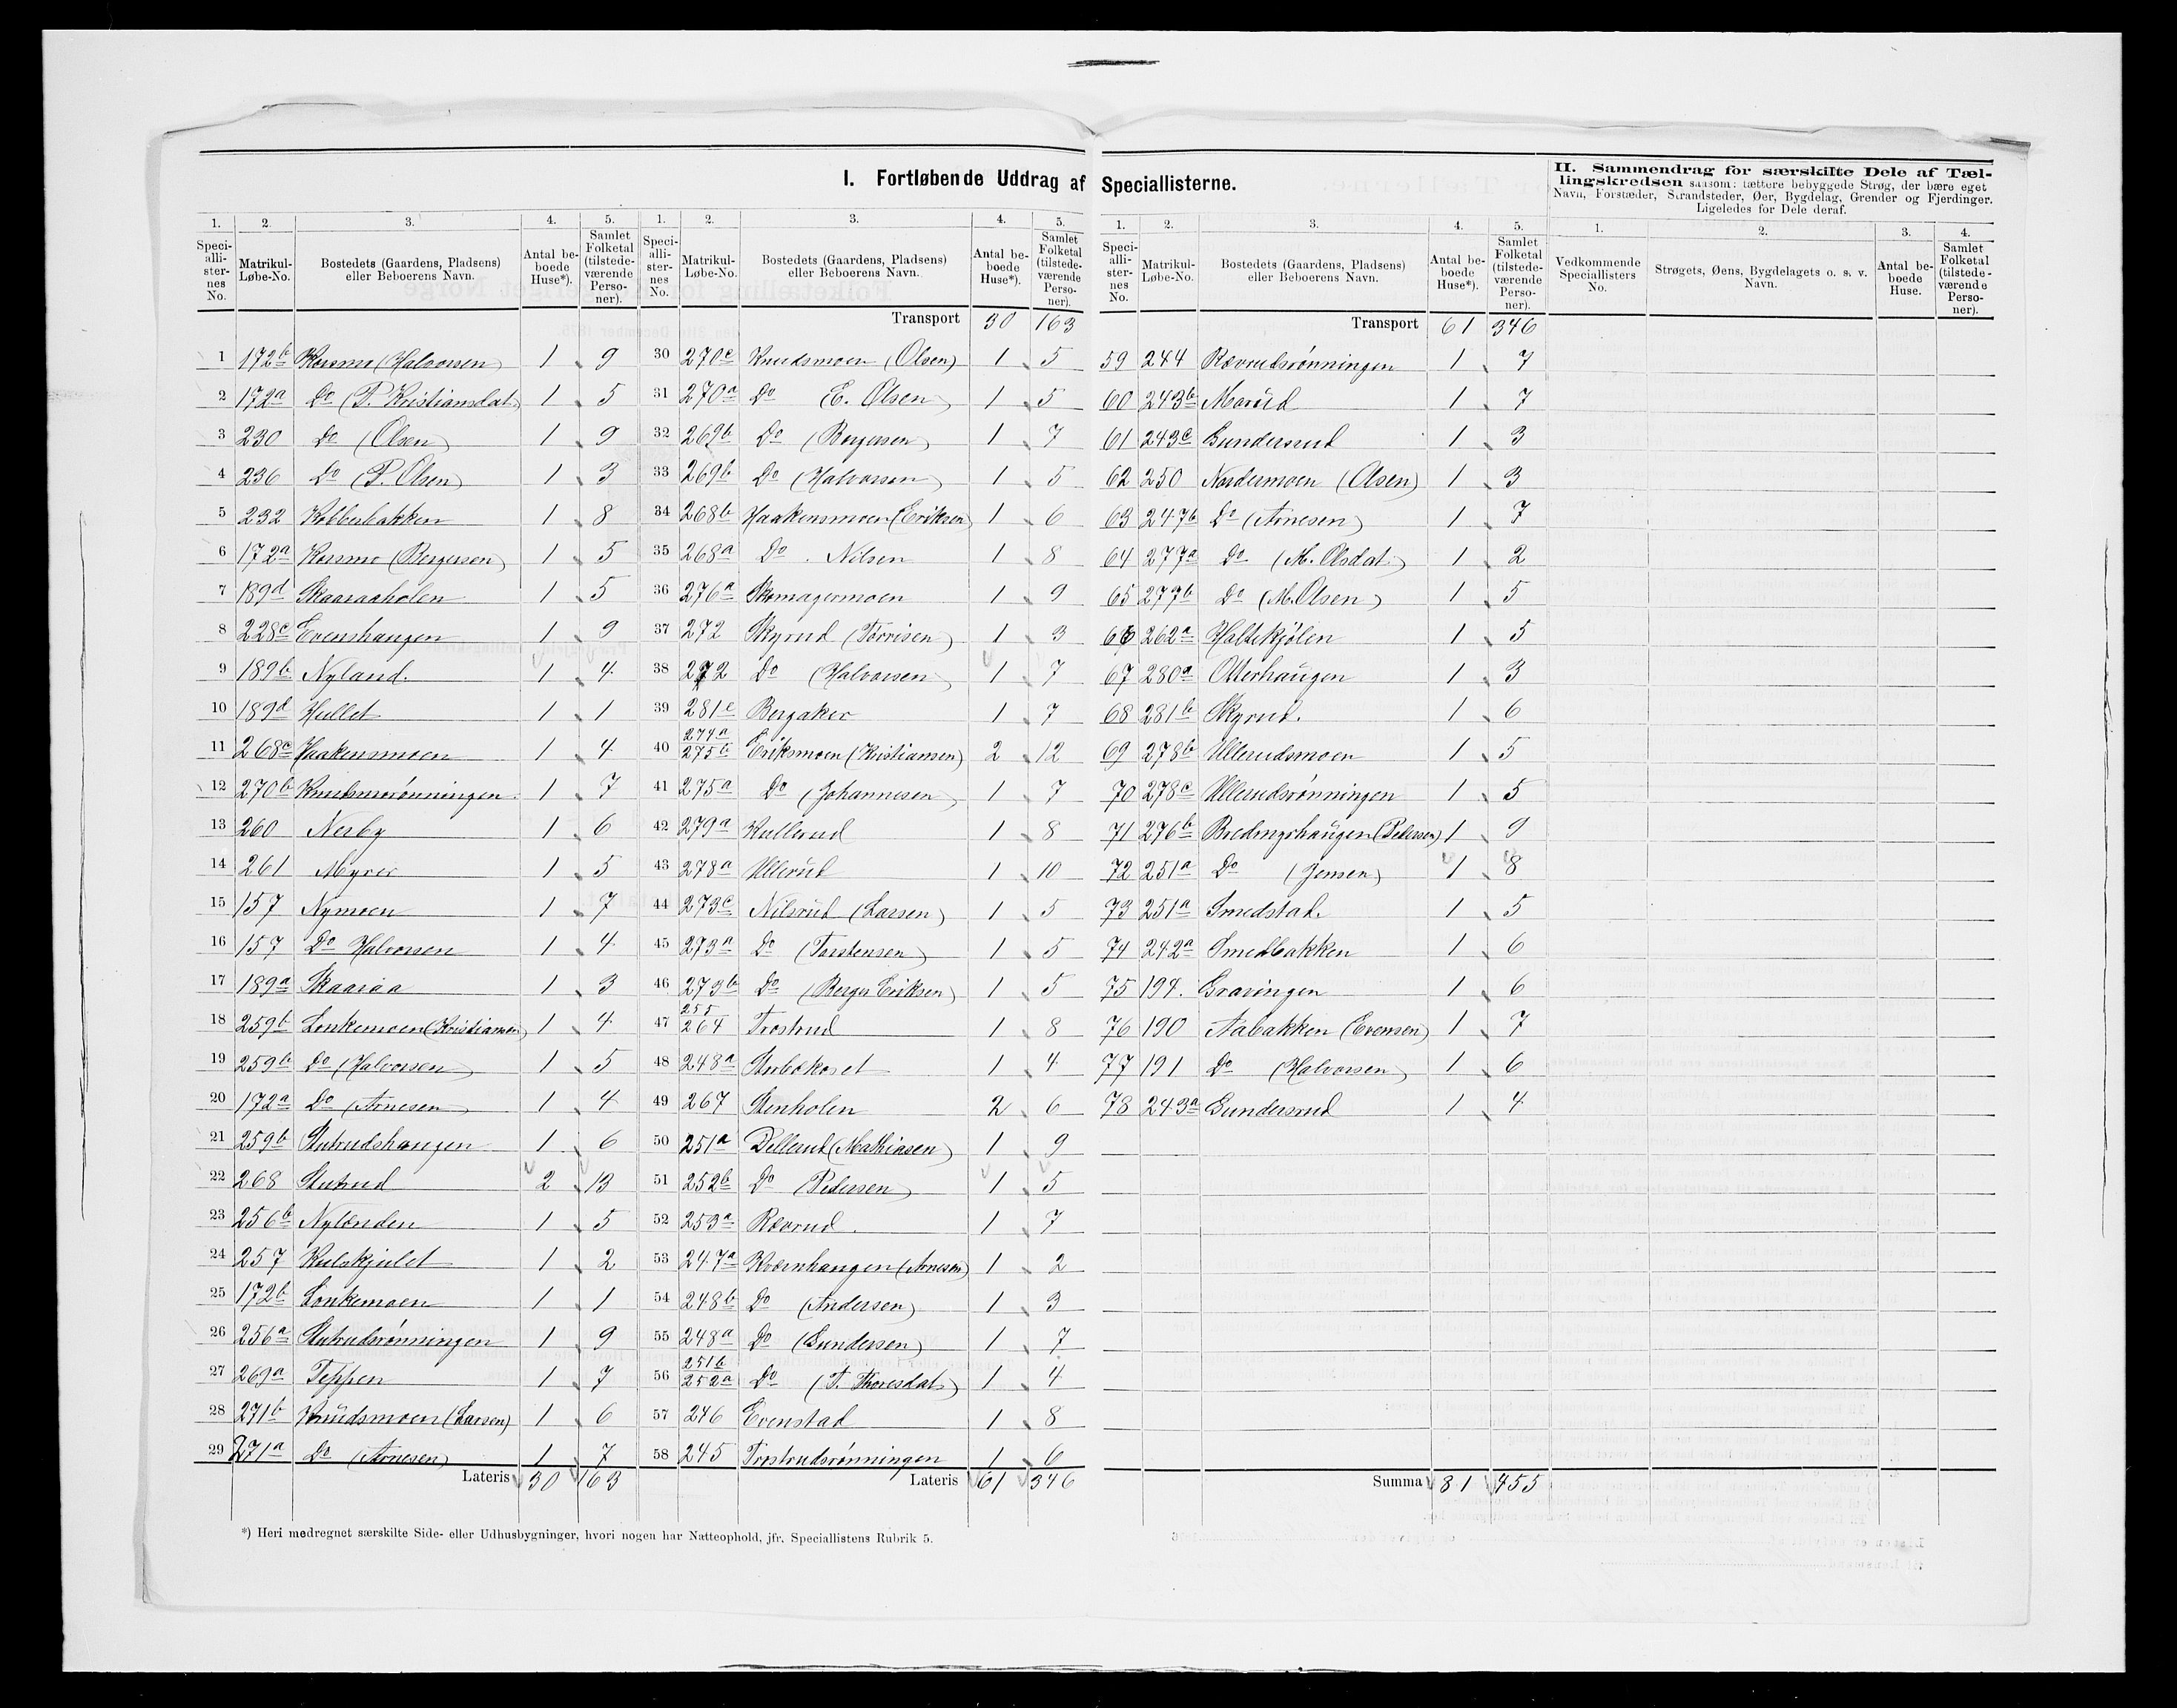 I. Fortløbende Uddrag af Speciallisterne.
1. 2. 3. 4. 5.
Speciallisternes No. Matrikul-Løbe-No. Bostedets (Gaardens, Pladsens) eller Beboerens Navn. Antal beboede Huse*). Samlet Folketal (tilstedeværende Personer).
1 172b Korsmo (Halvorsen) 1 9
2 172a Do (P. Kristiansdat.) 1 5
3 230 Do (Olsen) 1 9
4 236 Do (P. Olsen) 1 3
5 232 Kobberbakken 1 8
6 172a Korsmo (Bergersen) 1 5
7 189d Skaaraaholen 1 5
8 228c Evenshaugen 1 9
9 189b Nyland. 1 4
10 189d Hullet 1 1
11 268c Haakensmoen 1 4
12 270b Knudsmorønningen 1 7
13 260 Nesby 1 6
14 261 Myrer 1 5
15 157 Nymoen 1 7
16 157 Do Halvorsen 1 4
17 189a Skaaraa 1 3
18 259b Lonkemoen (Kristiansen) 1 4
19 259b Do (Halvorsen) 1 5
20 172a Do (Arnesen) 1 4
21 259b Stutrudshaugen 1 6
22 268 Stutrud 2 13
23 256b Nylænden 1 5
24 257 Kulskjulet 1 2
25 172b Lonkemoen 1 1
26 256a Stutrudsrønningen 1 9
27 269a Teppen 1 7
28 271b Knudsmoen (Larsen) 1 6
29 271a Do (Arnesen) 1 7
Lateris 30 163
1. 2. 3. 4. 5.
Speciallisternes No. Matrikul-Løbe-No. Bostedets (Gaardens, Pladsens) eller Beboerens Navn. Antal beboede Huse*). Samlet Folketal (tilstedeværende Personer).
Transport 30 163
30 270c Knudsmoen (Olsen) 1 5
31 270a Do E. Olsen 1 5
32 269b Do (Bergersen) 1 7
33 269b Do (Halvorsen) 1 5
34 268b Haakensmoen (Eriksen) 1 6
35 268a Do . Nilsen 1 8
36 276a Skomagermoen 1 9
37 272 Skyrud (Torrisen) 1 3
38 272 Do (Halvorsen) 1 7
39 281c Bergaker 1 7
40 274a 275b Eriksmoen (Kristiansen) 2 12
41 275a Do (Johannesen) 1 7
42 279a Kullerud 1 8
43 278a Ullerud 1 10
44 273c Nilsrud (Larsen) 1 5
45 273a Do (Torstensen) 1 5
46 273b Do (Berger Eriksen) 1 5
47 255 264 Trostrud 1 8
48 248a Stubekoset 1 4
49 267 Stenholen 2 6
50 251a Dellerud (Mathiasen) 1 9
51 252b Do (Pedersen) 1 5
52 253a Rævrud. 1 7
53 247a Kværnhaugen (Arnesen) 1 2
54 248b Do (Andersen) 1 3
55 248a Do (Gundersen) 1 7
56 251b 252a Do (T. Thoresdat) 1 4
57 246 Evenstad 1 8
58 245 Trostrudsrønningen 1 6
Lateris 61 346
1. 2. 3. 4. 5.
Speciallisternes No. Matrikul-Løbe-No. Bostedets (Gaardens, Pladsens) eller Beboerens Navn. Antal beboede Huse*). Samlet Folketal (tilstedeværende Personer).
Transport 61 346
59 244 Rævrudsrønningen 1 7
60 243b Morud 1 7
61 243c Gundersrud 1 3
62 250 Nordermoen (Olsen) 1 3
63 247b Do (Arnesen) 1 7
64 277a Do (M. Olsdat.) 1 2
65 277b Do (M. Olsen) 1 5
66 262a Haltekjölen 1 5
67 280a Otterhaugen 1 3
68 281b Skyrud. 1 6
69 278b Ullerudsmoen 1 5
70 278c Ullerudsrønningen 1 5
71 276b (Pedersen) 1 9
72 251a Do (Jensen) 1 8
73 251a Smedstad. 1 5
74 242a Smedbakken 1 6
75 194. Graringen 1 6
76 190 Aabakken (Evensen) 1 7
77 191 Do (Halvorsen) 1 6
78 243a Gundersrud 1 4
Summa 81 455
II. Sammendrag for særskilte Dele af Tællingskredsen saasom: tættere bebyggede Strøg, der bære eget
Navn, Forstæder, Strandsteder, Øer, Bygdelag, Grender og Fjerdinger.
Ligeledes for Dele deraf.
1. 2. 3. 4.
Vedkommende Speciallisters No. Strøgets, Øens, Bygdelagets o. s. v. Navn. Antal beboede Huse. Samlet Folketal (tilstedeværende Personer).
*) Heri medregnet særskilte Side- eller Udhusbygninger, hvori nogen har Natteophold, jfr. Speciallistens Rubrik 5.